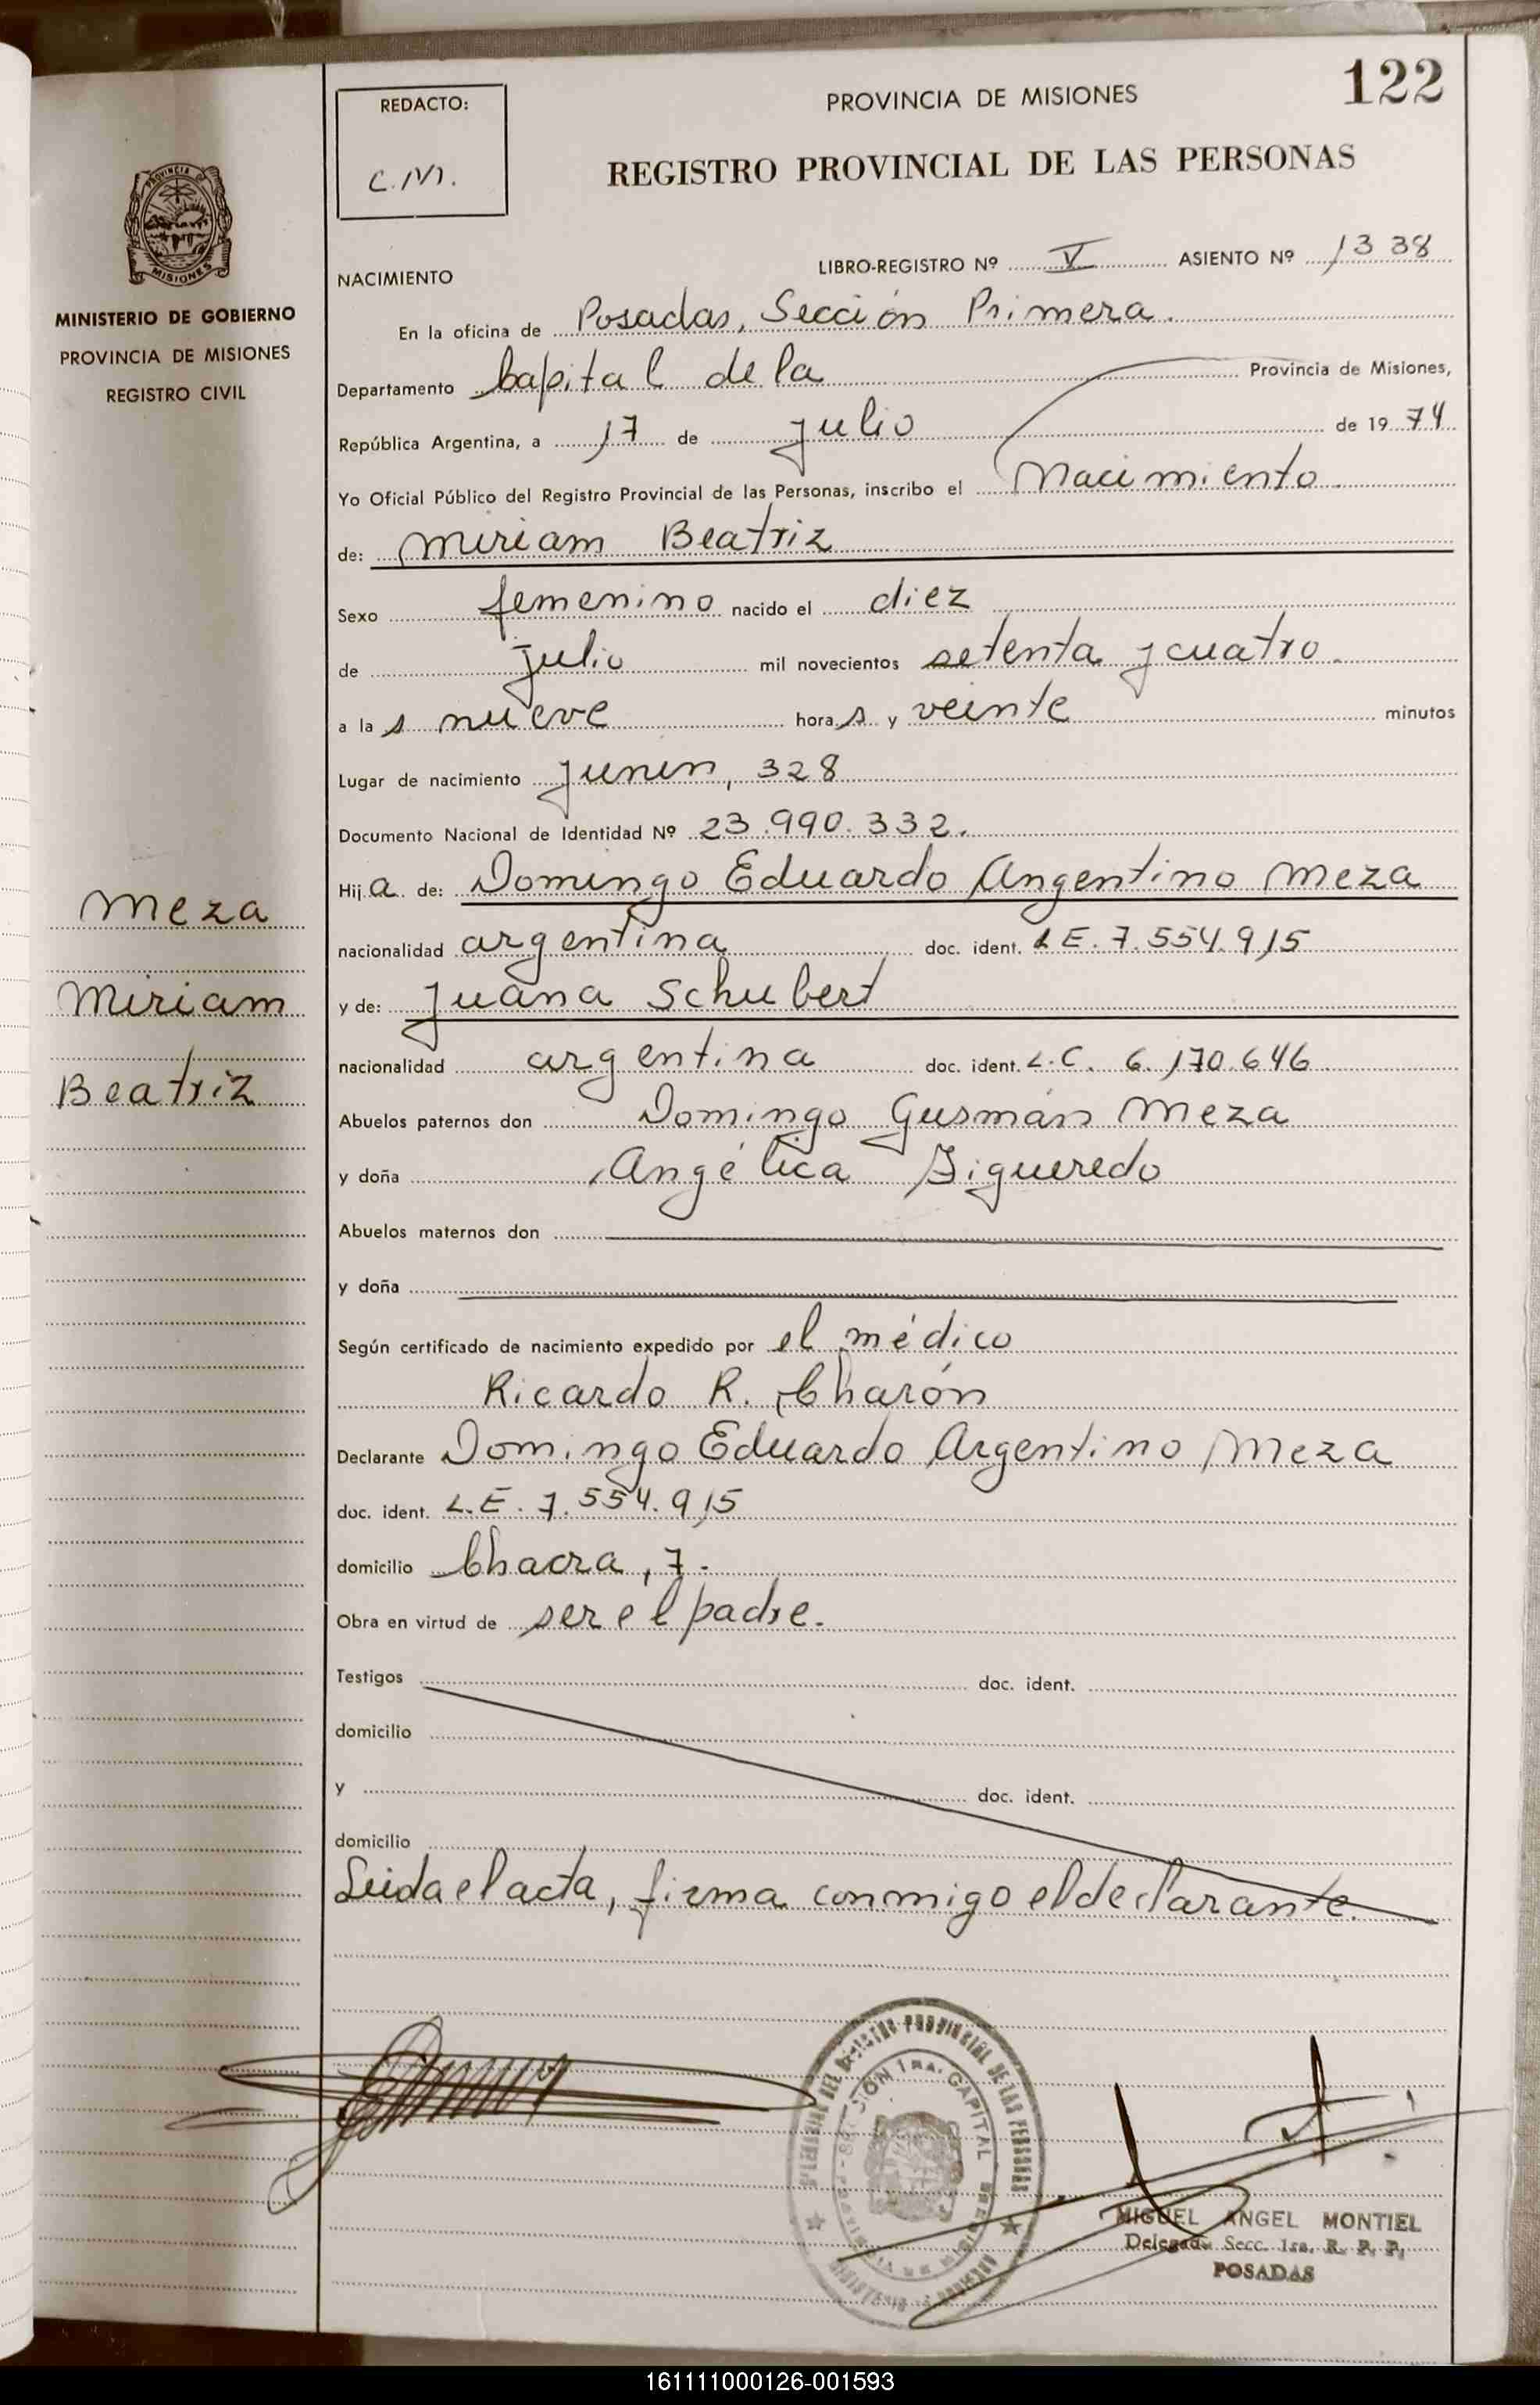 122
REDACTO:
C.M.
PROVINCIA DE MISIONES
REGISTRO PROVINCIAL DE LAS PERSONAS
MINISTERIO DE GOBIERNO
PROVINCIA DE MISIONES
REGISTRO CIVIL
NACIMIENTO
LIBRO-REGISTRO Nº V ASIENTO Nº 1338
En la oficina de Posadas, Sección Primera.
Departamento Capital de la Provincia de Misiones,
República Argentina, a 17 de Julio de 1974
Yo Oficial Público del Registro Provincial de las Personas, inscribo el Nacimiento
de: Miriam Beatriz
Sexo femenino nacido el diez
de Julio mil novecientos setenta y cuatro
a las nueve horas y veinte minutos
Lugar de nacimiento Junin, 328
Documento Nacional de Identidad Nº 23.990.332.
Hija de: Domingo Eduardo Argentino Meza
nacionalidad argentina doc. ident. L.E. 7.554.915
y de: Juana Schubert
nacionalidad argentina doc. ident. L.C. 6.170.646
Abuelos paternos don Domingo Gusmán Meza
y doña Angélica Figueredo
Abuelos maternos don
y doña
Según certificado de nacimiento expedido por el médico
Ricardo R. Charón
Declarante Domingo Eduardo Argentino Meza
doc. ident. L.E. 7.554.915
domicilio Chacra, 7.
Obra en virtud de ser el padre.
Testigos doc. ident.
domicilio
y doc. ident.
domicilio
Leida el acta, firma conmigo el declarante.
Meza
Miriam
Beatriz
MIGUEL ANGEL MONTIEL
Delegado Secc. 1ra. R. P. P.
POSADAS
161111000126-001593